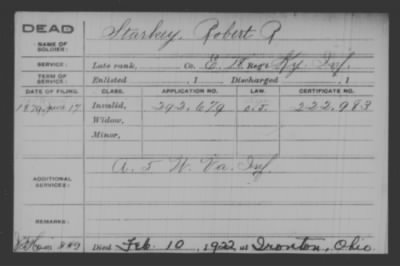 DEAD
NAME OF SOLDIER: Starkey, Robert R
SERVICE: Late rank, Co. E, Reg't Ky. Inf.
TERM OF SERVICE: Enlisted , 1 Discharged , 1
DATE OF FILING. CLASS. APPLICATION NO. LAW. CERTIFICATE NO.
1879, June 17 Invalid, 292.679 222.983
Widow,
Minor,
ADDITIONAL SERVICES: A. 5 W. Va. Inf.
REMARKS:
Died Feb. 10, 1922 at Ironton, Ohio.